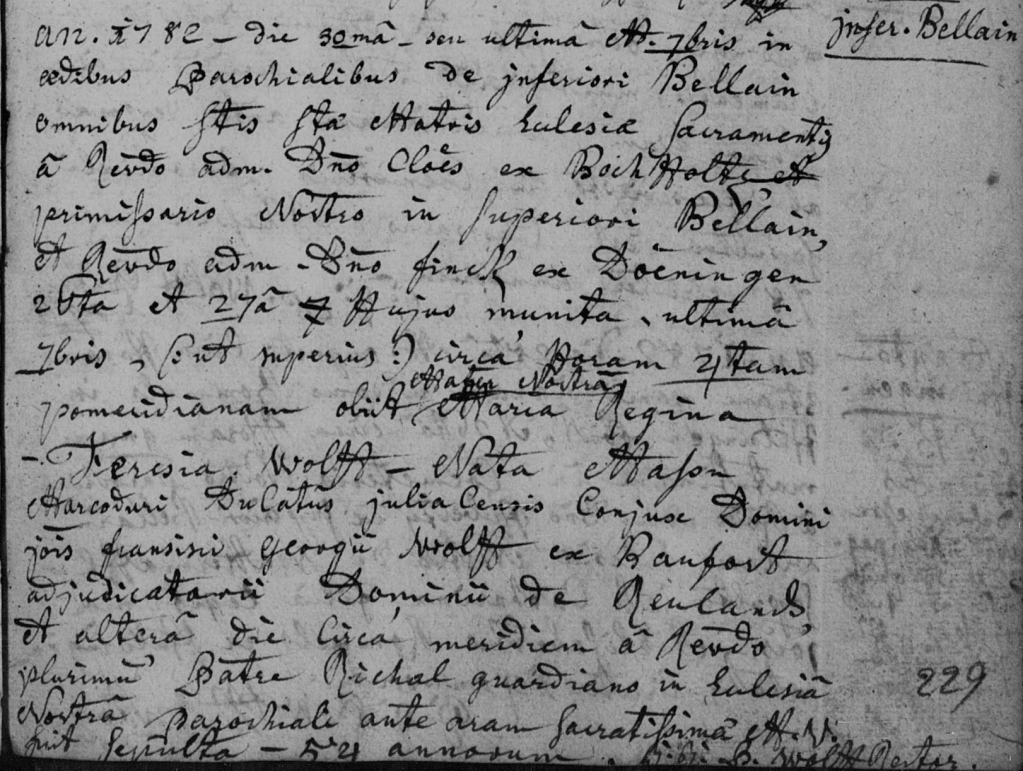 an. 1782 – die 30mâ – seu ultimâ M. 7bris in
infer. Bellain
ædibus Parochialibus de inferiori Bellain
omnibus Stis Stæ Matris Eclesiæ Sacramentis
â Revdo adm. Dño Cloês ex BochHoltz et
primissario Nostro in superiori Bellain,
et Revdo adm. Dño finck ex Doêningen
26ta et 27â 7 Hujus munita, ultimâ
7bris, (: ut superius :) circa Horam 4tam
Mater Nostra
pomeridianam obiit Maria Regina
– Teresia Wolff – Nata Mason
Marcoduri Ducatûs juliacensis Conjux Domini
jois fransisci georgii Wolff ex Ranfort
adjudicatarii Dominii de Reuland,
et alterâ die circa meridiem â Revdo
plurimu Patre Richal guardiano in Eclesiâ
229
Nostrâ parochiali ante aram sacratissimâ
fuit sepulta – 54 annorum. B. Wolff Rector.